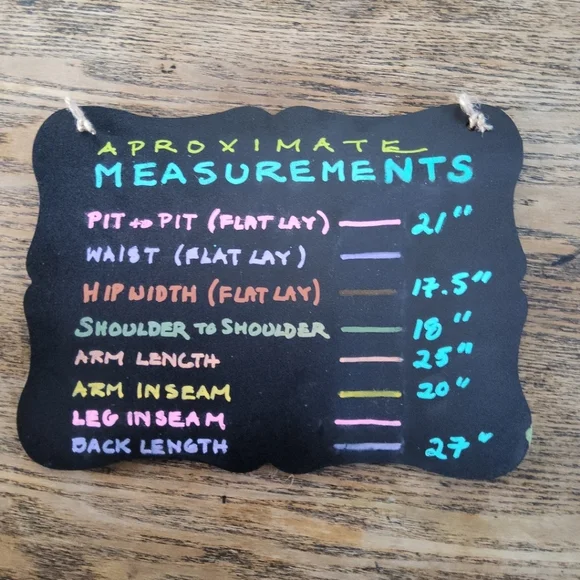 APROXIMATE
MEASUREMENTS
PIT to PIT (FLAT LAY) — 21"
WAIST (FLAT LAY) —
HIP WIDTH (FLAT LAY) — 17.5"
SHOULDER TO SHOULDER — 18"
ARM LENGTH — 25"
ARM INSEAM — 20"
LEG INSEAM —
BACK LENGTH — 27"